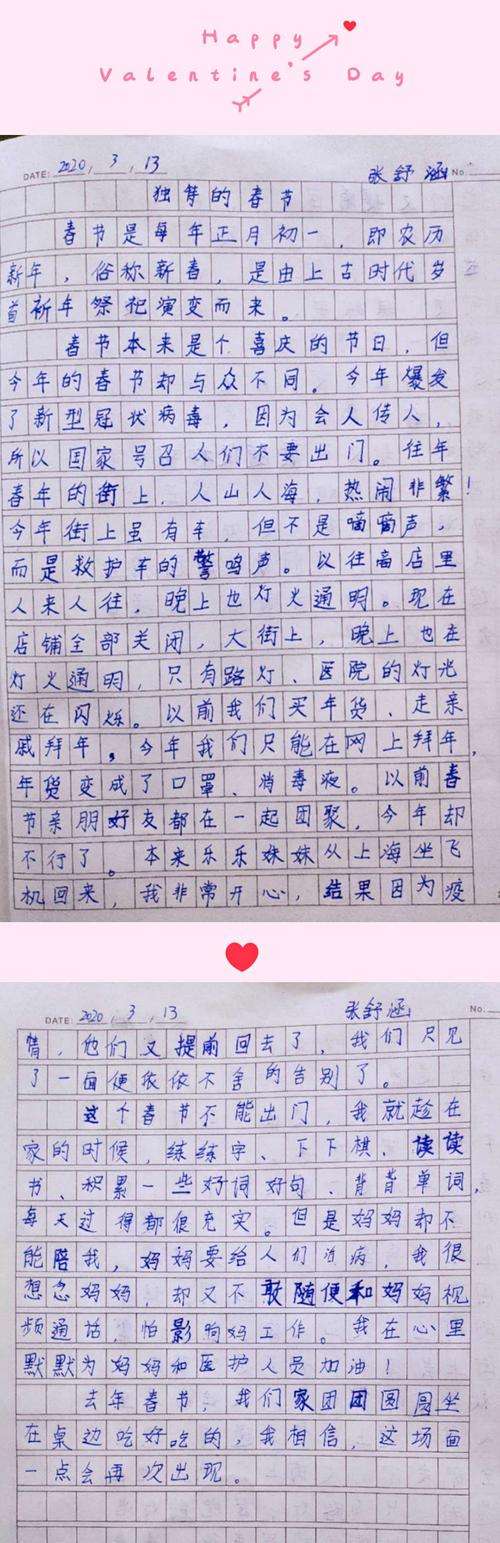 Happy
Valentine's Day
DATE: 2020, 3, 13 张舒涵 No.
独特的春节
春节是每年正月初一，即农历
新年，俗称新春，是由上古时代岁
首祈年祭祀演变而来。
春节本来是个喜庆的节日，但
今年的春节却与众不同。今年爆发
了新型冠状病毒，因为会人传人，
所以国家号召人们不要出门。往年
春年的街上，人山人海，热闹非繁！
今年街上虽有车，但不是嘀嘀声，
而是救护车的警鸣声。以往商店里
人来人往，晚上也灯火通明。现在
店铺全部关闭，大街上，晚上也在
灯火通明，只有路灯、医院的灯光
还在闪烁。以前我们买年货、走亲
戚拜年，今年我们只能在网上拜年，
年货变成了口罩、消毒液。以前春
节亲朋好友都在一起团聚，今年却
不行了。本来乐乐妹妹从上海坐飞
机回来，我非常开心，结果因为疫
DATE: 2020, 3, 13 张舒涵 No.
情，他们又提前回去了，我们只见
了一面便依依不舍的告别了。
这个春节不能出门，我就趁在
家的时候，练练字、下下棋、读读
书、积累一些好词好句、背背单词，
每天过得都很充实。但是妈妈却不
能陪我，妈妈要给人们治病，我很
想念妈妈，却又不敢随便和妈妈视
频通话，怕影响妈工作。我在心里
默默为妈妈和医护人员加油！
去年春节，我们家团团圆圆坐
在桌边吃好吃的，我相信，这场面
一点会再次出现。